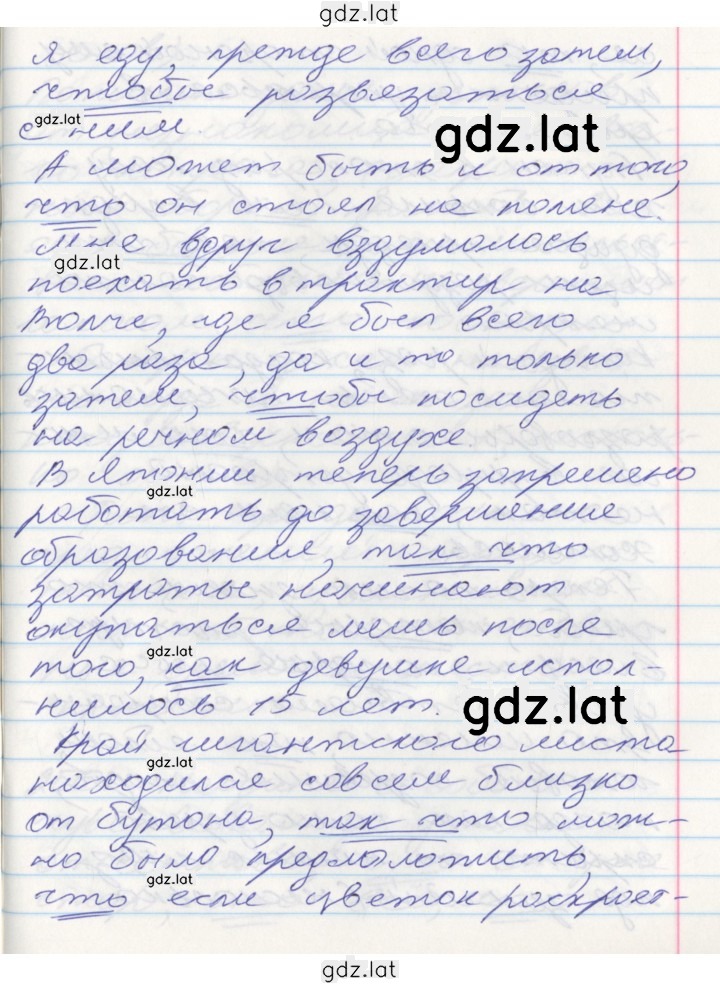 gdz.lat
я еду, прежде всего затем,
чтобы развязаться
с ним.
gdz.lat
gdz.lat
А может быть и от того,
что он стоял на полене.
Мне вдруг вздумалось
gdz.lat
поехать в трактир на
Волге, где я был всего
два раза, да и то только
затем, чтобы посидеть
на речном воздухе.
В Японии теперь запрещено
gdz.lat
работать до завершения
образования, так что
затраты начинают
окупаться лишь после
gdz.lat
того, как девушке испол-
нилось 15 лет.
gdz.lat
Край гигантского листа
gdz.lat
находился совсем близко
от бутона, так что мож-
но было предположить,
gdz.lat
что если цветок раскроет-
gdz.lat